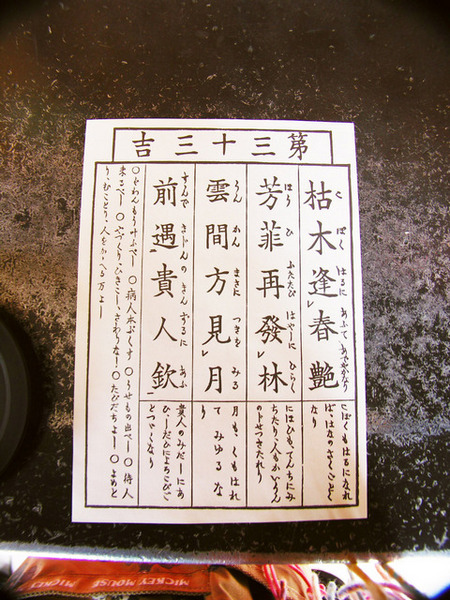 第三十三吉
枯木逢春艷
こ ぼく はるに あふて あでやかなり
こぼくもはるになれ
ば、はなのさくごとく
なり
芳菲再發林
はう ひ ふたたび はやしに ひらく
にほひも、てんちにみ
ちたり、人もかいうん
のじせつきたれり
雲間方見月
うん かん まさに つきを みる
月も、くもはれ
てみゆるな
り
前遇貴人欽
すんで きじんの きんするに あふ
貴人の
とつゞくなり
○病人本ぷくす ○うせもの出べし ○待人
来るべし ○やづくり、ひきこし、さわりなし ○たびだちよし ○よめと
り、むことり、人をかゝへる万よし
MICKEY MOUSE